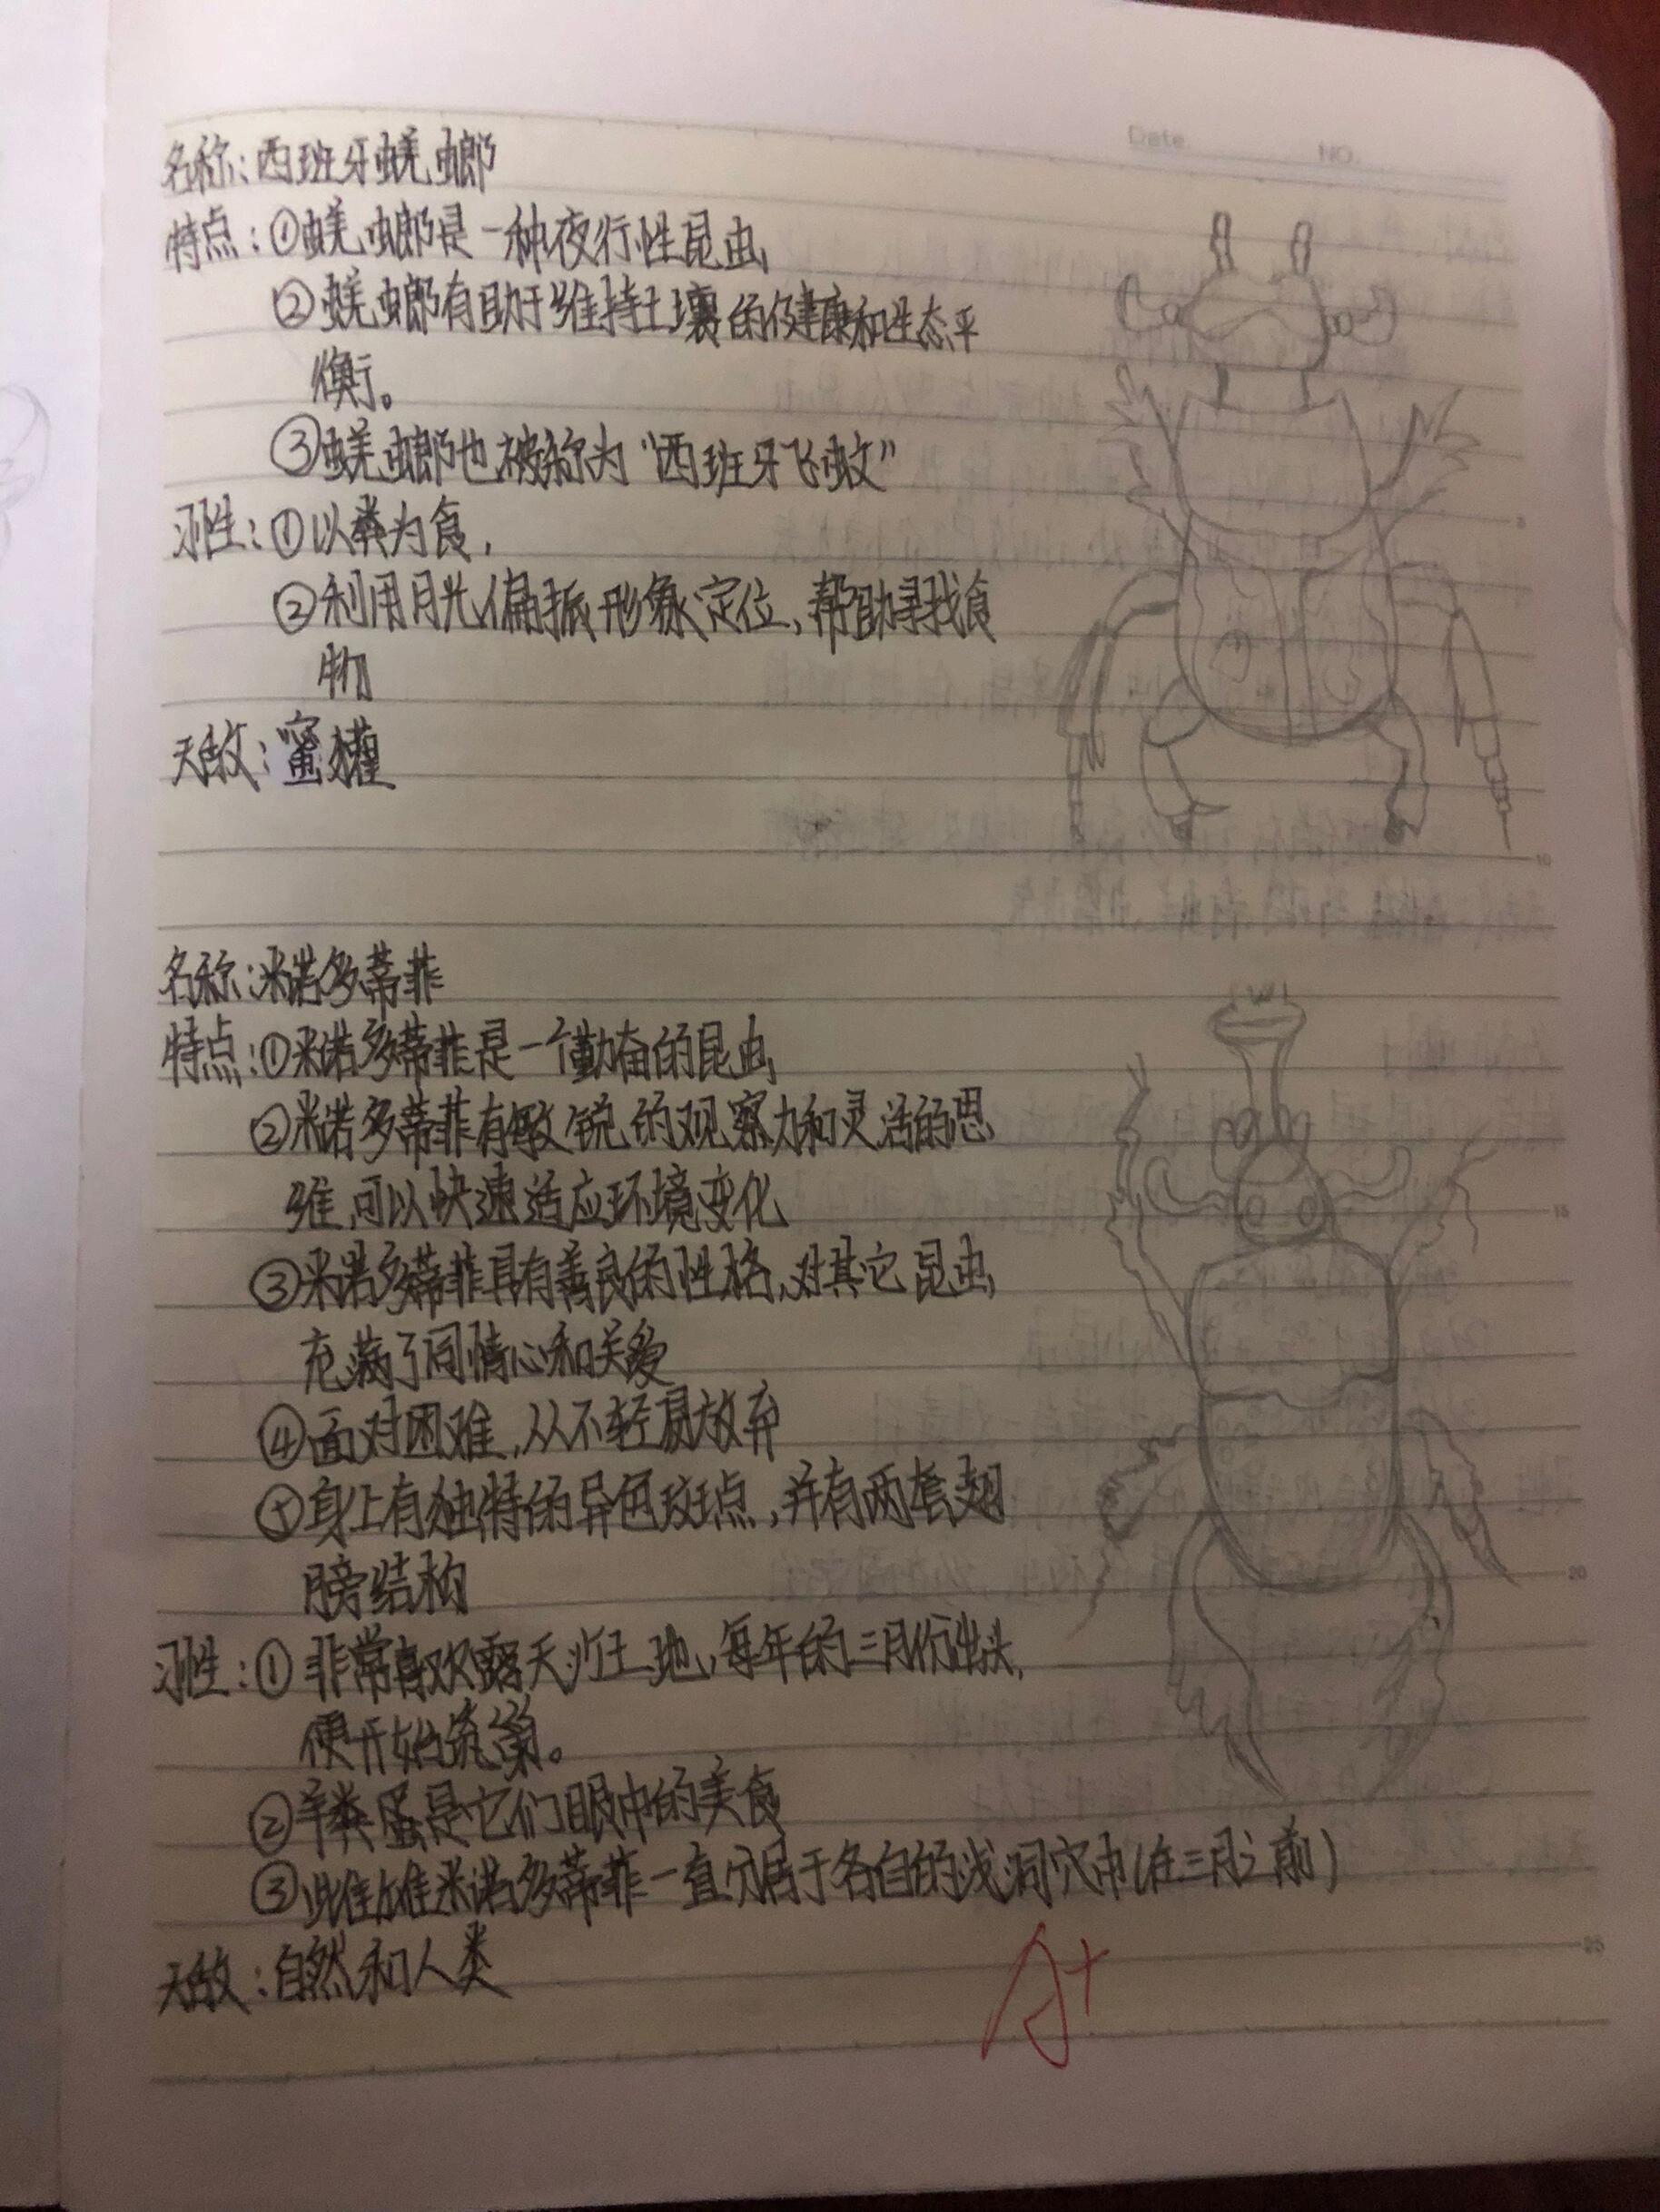 Date
NO.
名称：西班牙蜣螂
特点：①蜣螂是一种夜行性昆虫
②蜣螂有助于维持土壤的健康和生态平
衡。
③蜣螂也被称为“西班牙飞蚊”
习性：①以粪为食，
②利用月光偏振形象定位，帮助寻找食
物
天敌：蜜獾
名称：米诺多蒂菲
特点：①米诺多蒂菲是一个勤奋的昆虫
②米诺多蒂菲有敏锐的观察力和灵活的思
维，可以快速适应环境变化
③米诺多蒂菲具有善良的性格，对其它昆虫
充满了同情心和关爱
④面对困难，从不轻易放弃
⑤身上有独特的异色斑点，并有两套翅
膀结构
习性：① 非常喜欢露天沙土地，每年的三月份出头，
便开始筑巢。
②羊粪蛋是它们眼中的美食
③雌雄米诺多蒂菲一直分居于各自的浅洞穴中（在三月之前）
天敌：自然和人类
A+
5
10
15
20
25